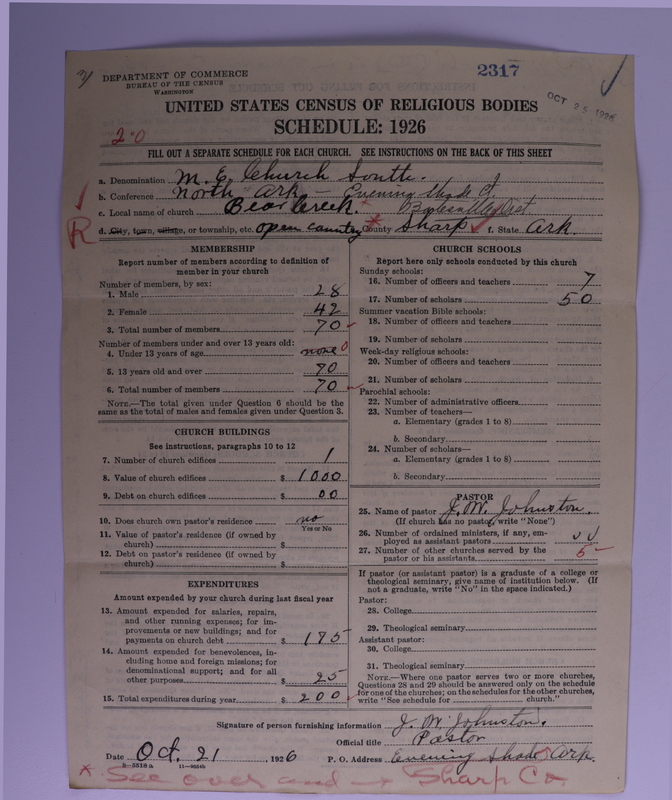 2317
DEPARTMENT OF COMMERCE
BUREAU OF THE CENSUS
WASHINGTON
OCT 25 1926
UNITED STATES CENSUS OF RELIGIOUS BODIES
SCHEDULE: 1926
FILL OUT A SEPARATE SCHEDULE FOR EACH CHURCH. SEE INSTRUCTIONS ON THE BACK OF THIS SHEET
a. Denomination M. E. Church South.
b. Conference North Ark — Evening Shade Ct
c. Local name of church Bear Creek.
d. City, town, village, or township, etc. open country County Sharp f. State Ark.
R
MEMBERSHIP
Report number of members according to definition of
member in your church
Number of members, by sex:
1. Male 28
2. Female 42
3. Total number of members 70
Number of members under and over 13 years old:
4. Under 13 years of age none 0
5. 13 years old and over 70
6. Total number of members 70
NOTE.—The total given under Question 6 should be the
same as the total of males and females given under Question 3.
CHURCH BUILDINGS
See instructions, paragraphs 10 to 12
7. Number of church edifices 1
8. Value of church edifices $ 1000
9. Debt on church edifices $ 00
10. Does church own pastor's residence no
Yes or No
11. Value of pastor's residence (if owned by
church) $
12. Debt on pastor's residence (if owned by
church) $
EXPENDITURES
Amount expended by your church during last fiscal year
13. Amount expended for salaries, repairs,
and other running expenses; for im-
provements or new buildings; and for
payments on church debt $ 175
14. Amount expended for benevolences, in-
cluding home and foreign missions; for
denominational support; and for all
other purposes $ 25
15. Total expenditures during year $ 200
CHURCH SCHOOLS
Report here only schools conducted by this church
Sunday schools:
16. Number of officers and teachers 7
17. Number of scholars 50
Summer vacation Bible schools:
18. Number of officers and teachers
19. Number of scholars
Week-day religious schools:
20. Number of officers and teachers
21. Number of scholars
Parochial schools:
22. Number of administrative officers
23. Number of teachers—
a. Elementary (grades 1 to 8)
b. Secondary
24. Number of scholars—
a. Elementary (grades 1 to 8)
b. Secondary
PASTOR
25. Name of pastor J. M. Johnston.
(If church has no pastor, write "None")
26. Number of ordained ministers, if any, em-
ployed as assistant pastors
27. Number of other churches served by the
pastor or his assistants
If pastor (or assistant pastor) is a graduate of a college or
theological seminary, give name of institution below. (If
not a graduate, write "No" in the space indicated.)
Pastor:
28. College
29. Theological seminary
Assistant pastor:
30. College
31. Theological seminary
NOTE.—Where one pastor serves two or more churches,
Questions 28 and 29 should be answered only on the schedule
for one of the churches; on the schedules for the other churches,
write "See schedule for church."
Signature of person furnishing information J. M. Johnston.
Official title Pastor
Date Oct. 21, 1926 P. O. Address Evening Shade Ark.
8—5518a 11—9554b
* See over and → Sharp Co